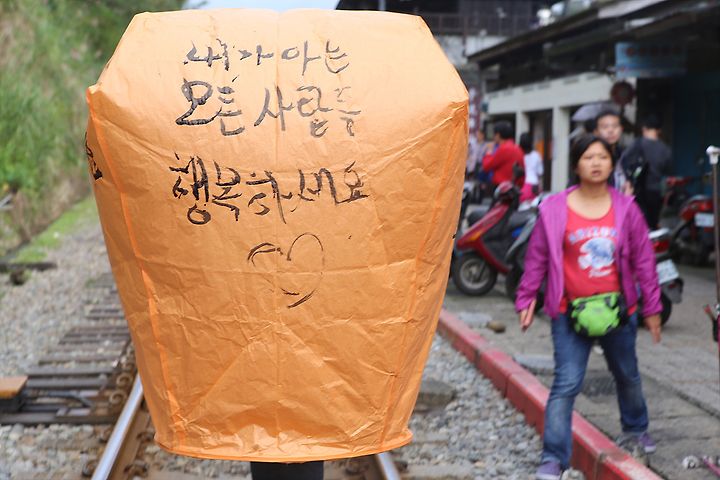 내가 아는
모든 사람들
행복하세요